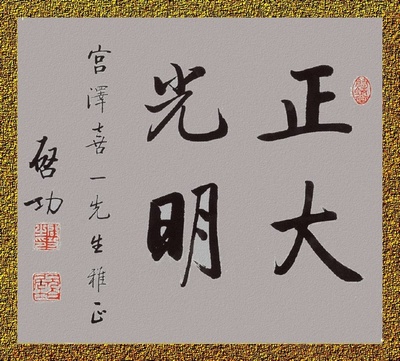 正大
光明
宫澤喜一先生雅正
啓功